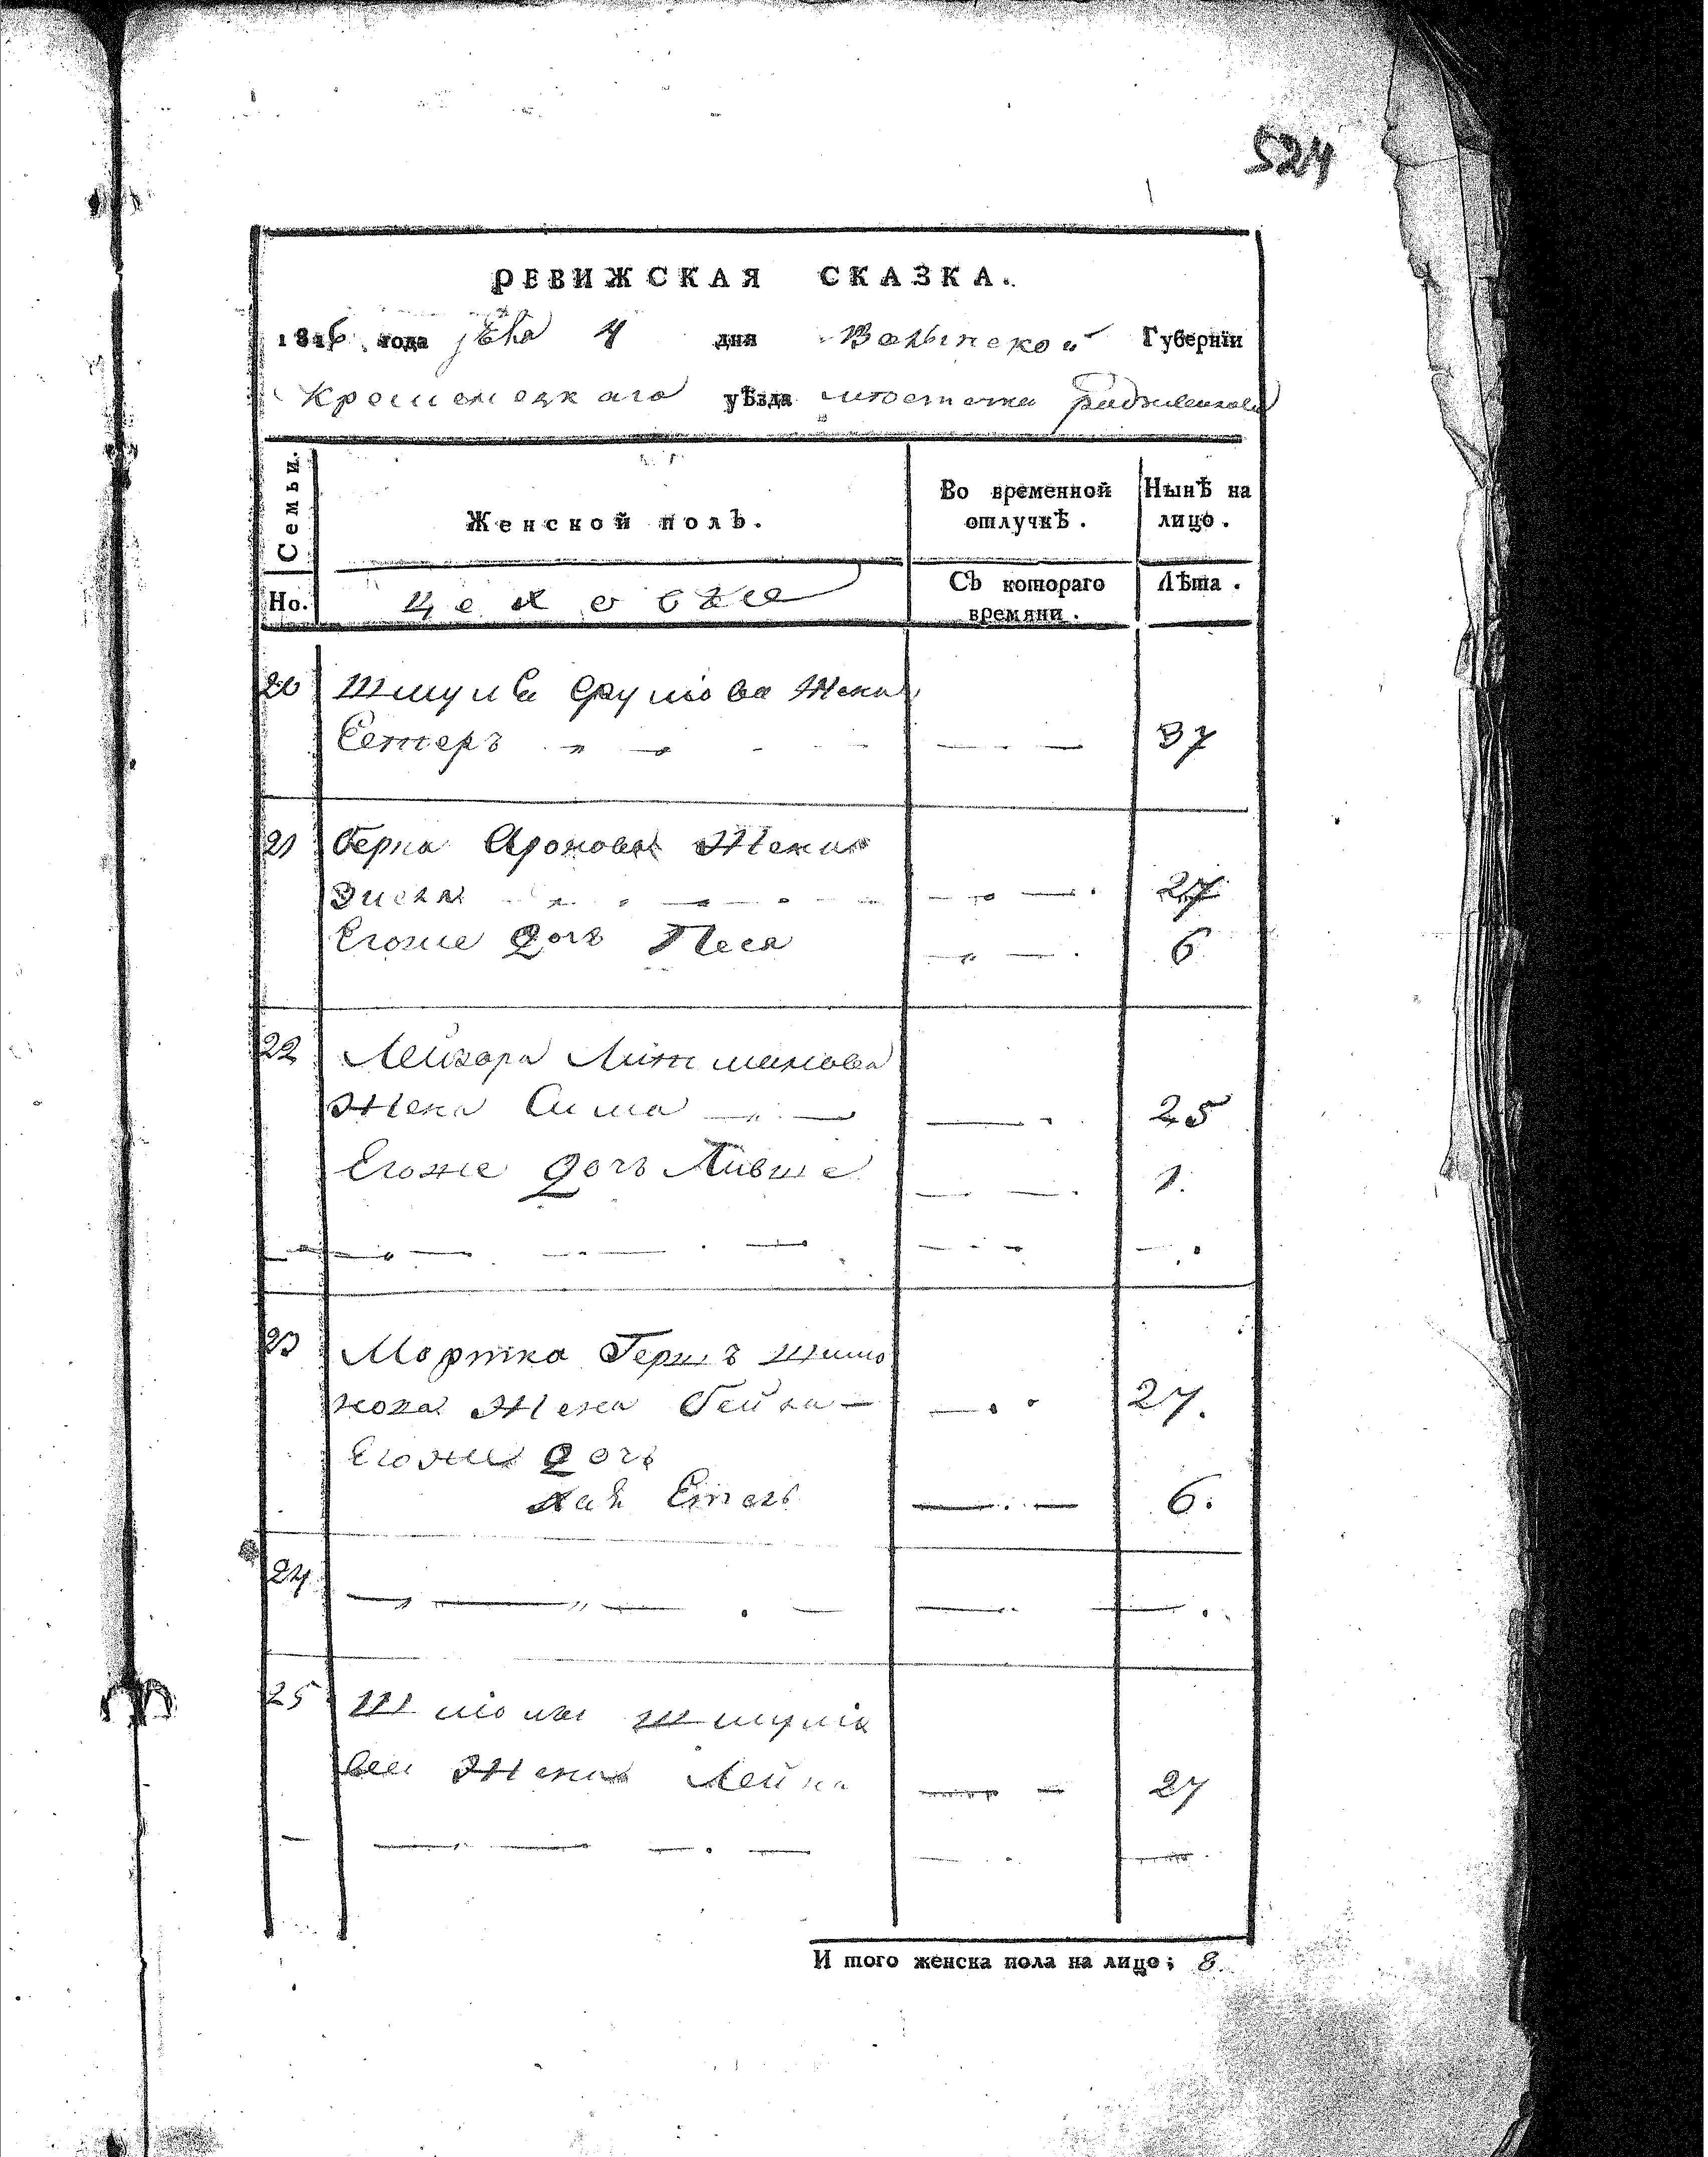 524
РЕВИЖСКАЯ СКАЗКА.
1816 года 4 дня Волынской Губернїи
Кременецкаго уѣзда местечка Радзивилова
Семьи.
Женской полъ.
Во временной
отлучкѣ.
Нынѣ на
лицо.
Но.
Съ котораго
времяни.
Лѣта.
20 Шмуля Жена
Естеръ 37
21 Берка Аронова Жена
27
Егоже дочь Песя 6
22 Лейзора Литманова
Жена Сима 25
Егоже дочь 1.
23 Мортка Герша
Жена Бейла 27.
Егоже дочь
Хая Етель 6.
24
25
Жена Лейка 27
И того женска пола на лицо; 8.